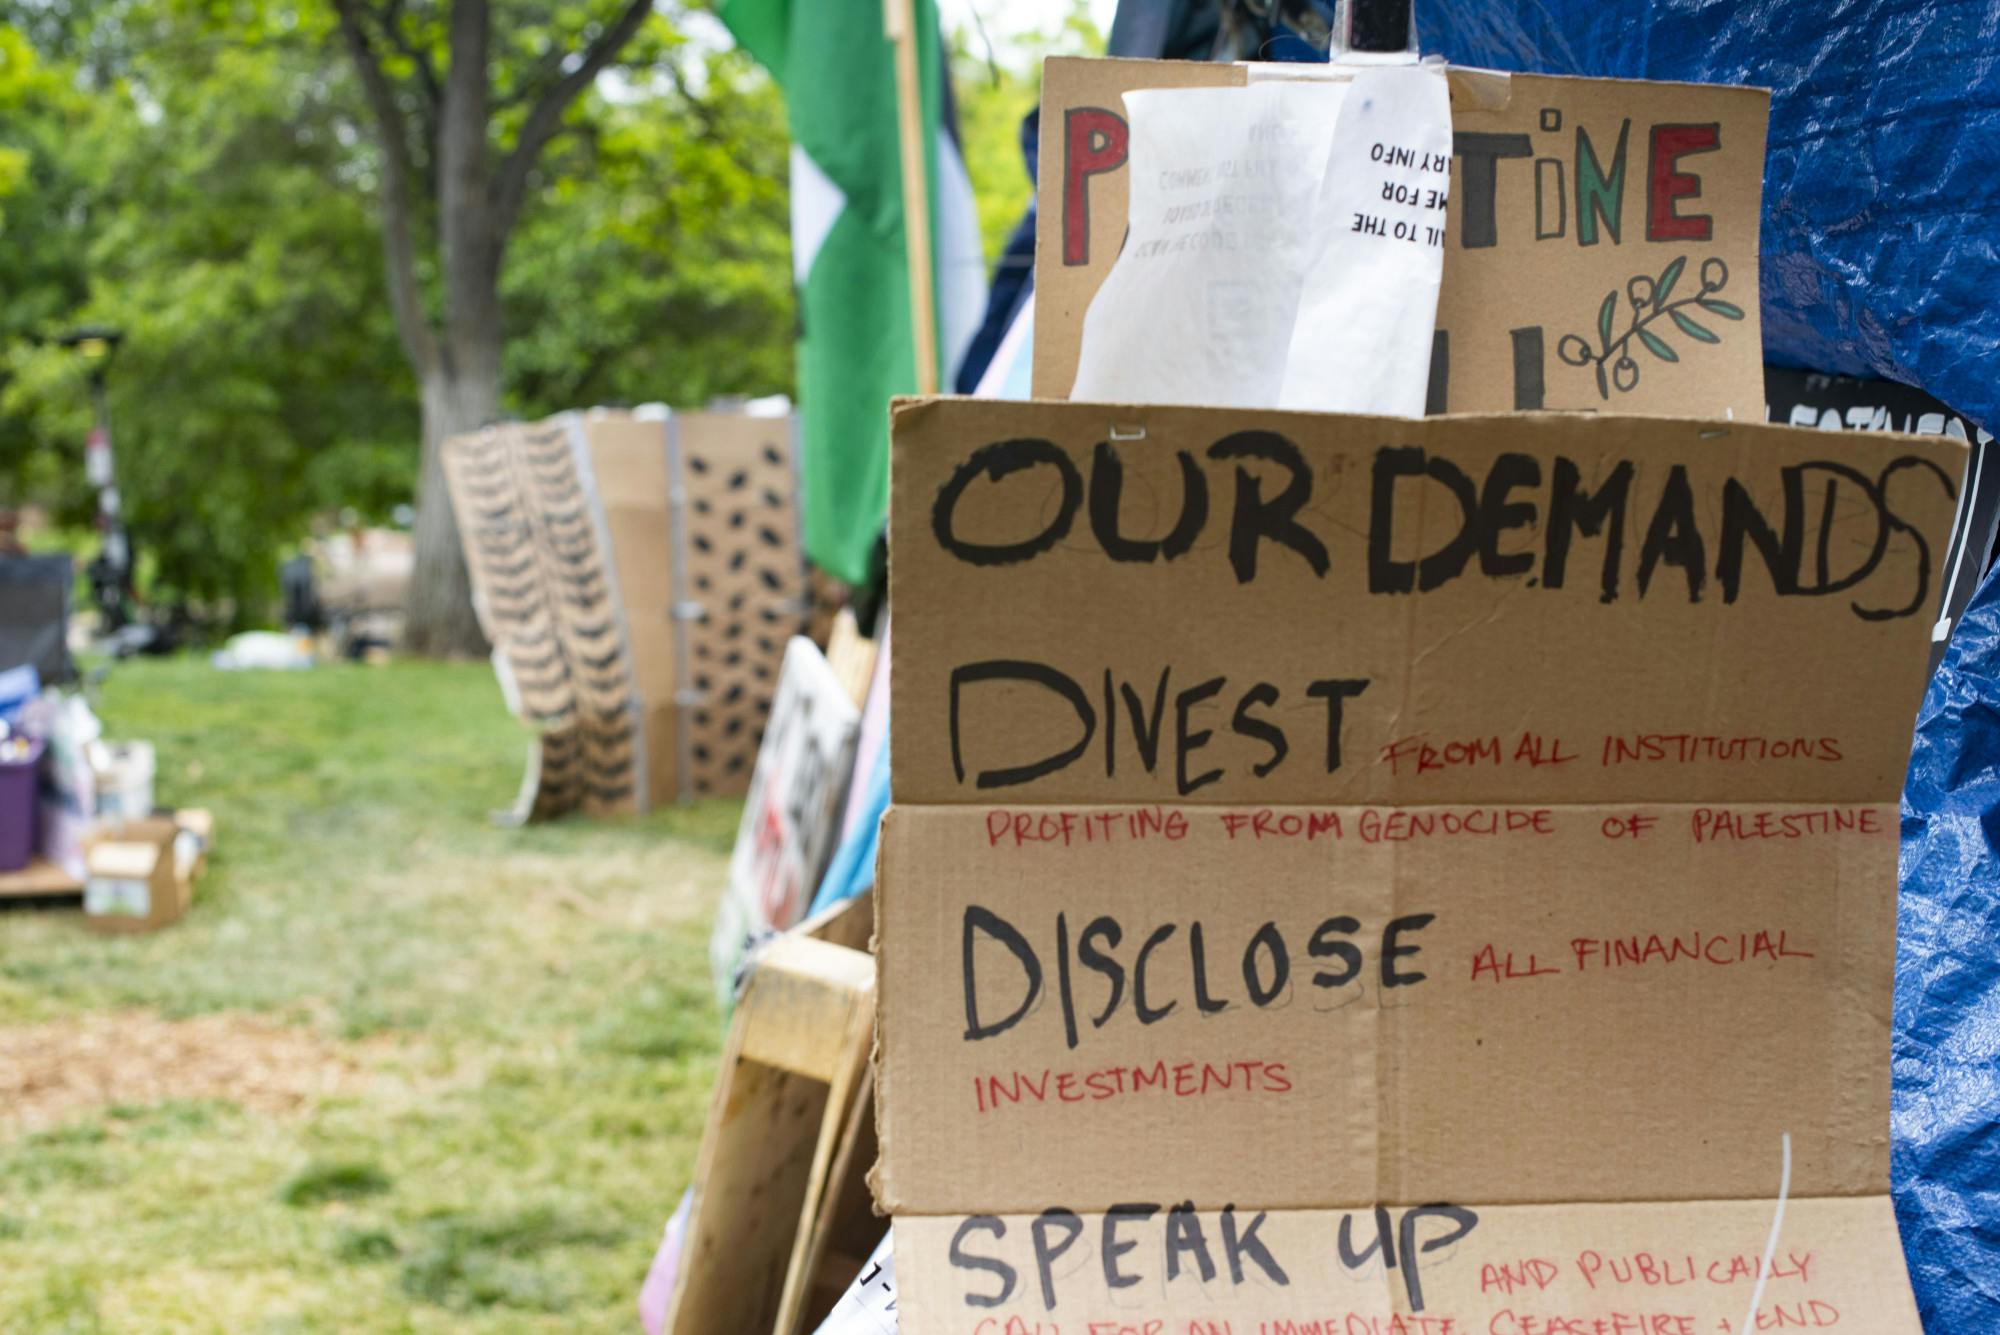 P TiNE
ARY INFO
ME FOR
AIL TO THE
OUR DEMANDS
DIVEST FROM ALL INSTITUTIONS
PROFITING FROM GENOCIDE OF PALESTINE
DISCLOSE ALL FINANCIAL
INVESTMENTS
SPEAK UP AND PUBLICALLY
CALL FOR AN IMMEDIATE CEASEFIRE + END